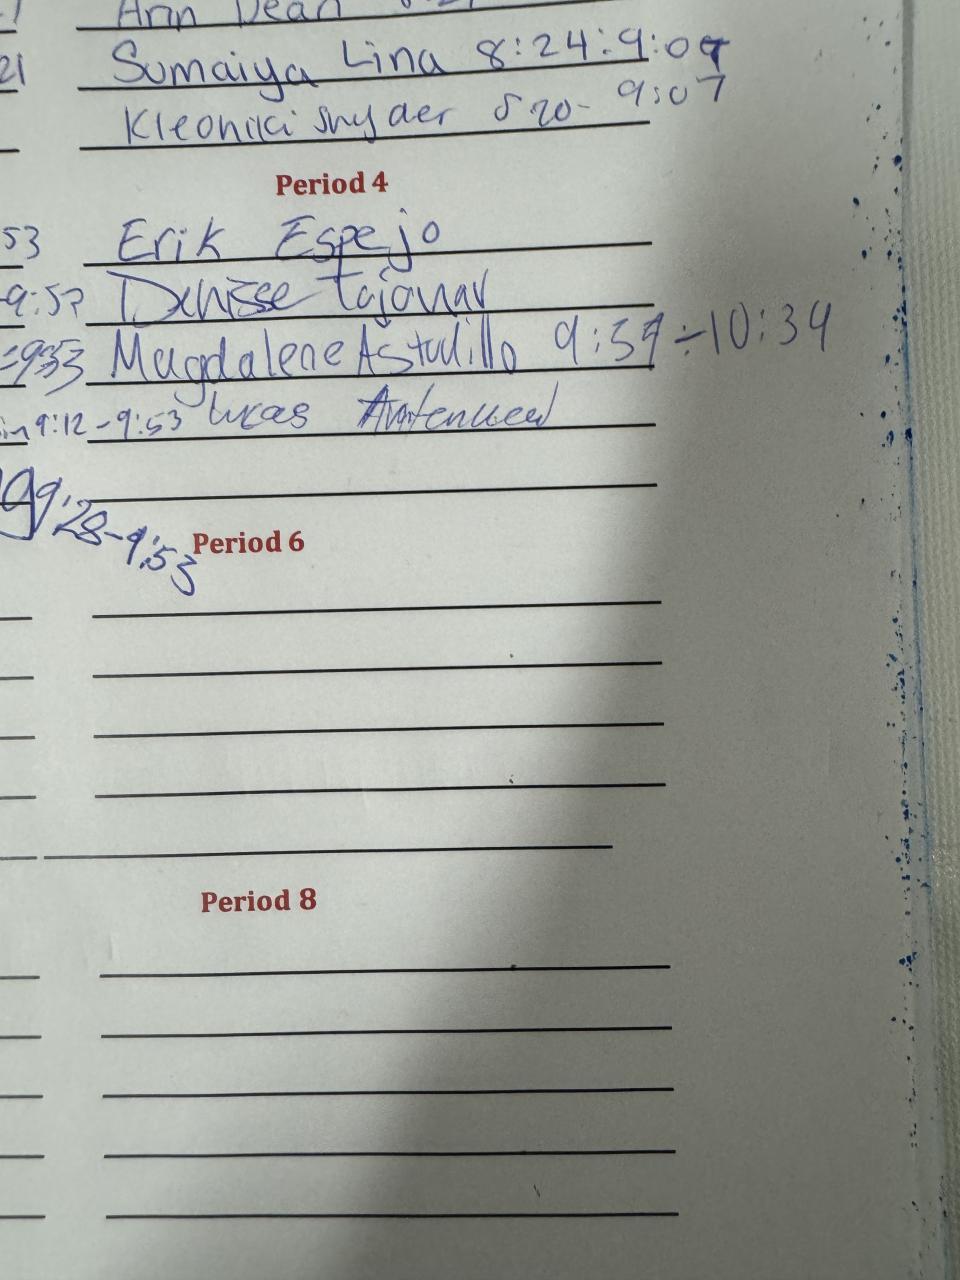 Ann Dean
21 Sumaiya Lina 8:24:9:07
Kleoniki Snyder 820- 9:07
Period 4
53 Erik Espejo
-9:53 Denisse
=9:53 Magdalene Astudillo 9:59-10:34
in 9:12-9:53 Lucas
9:28-9:53
Period 6
Period 8